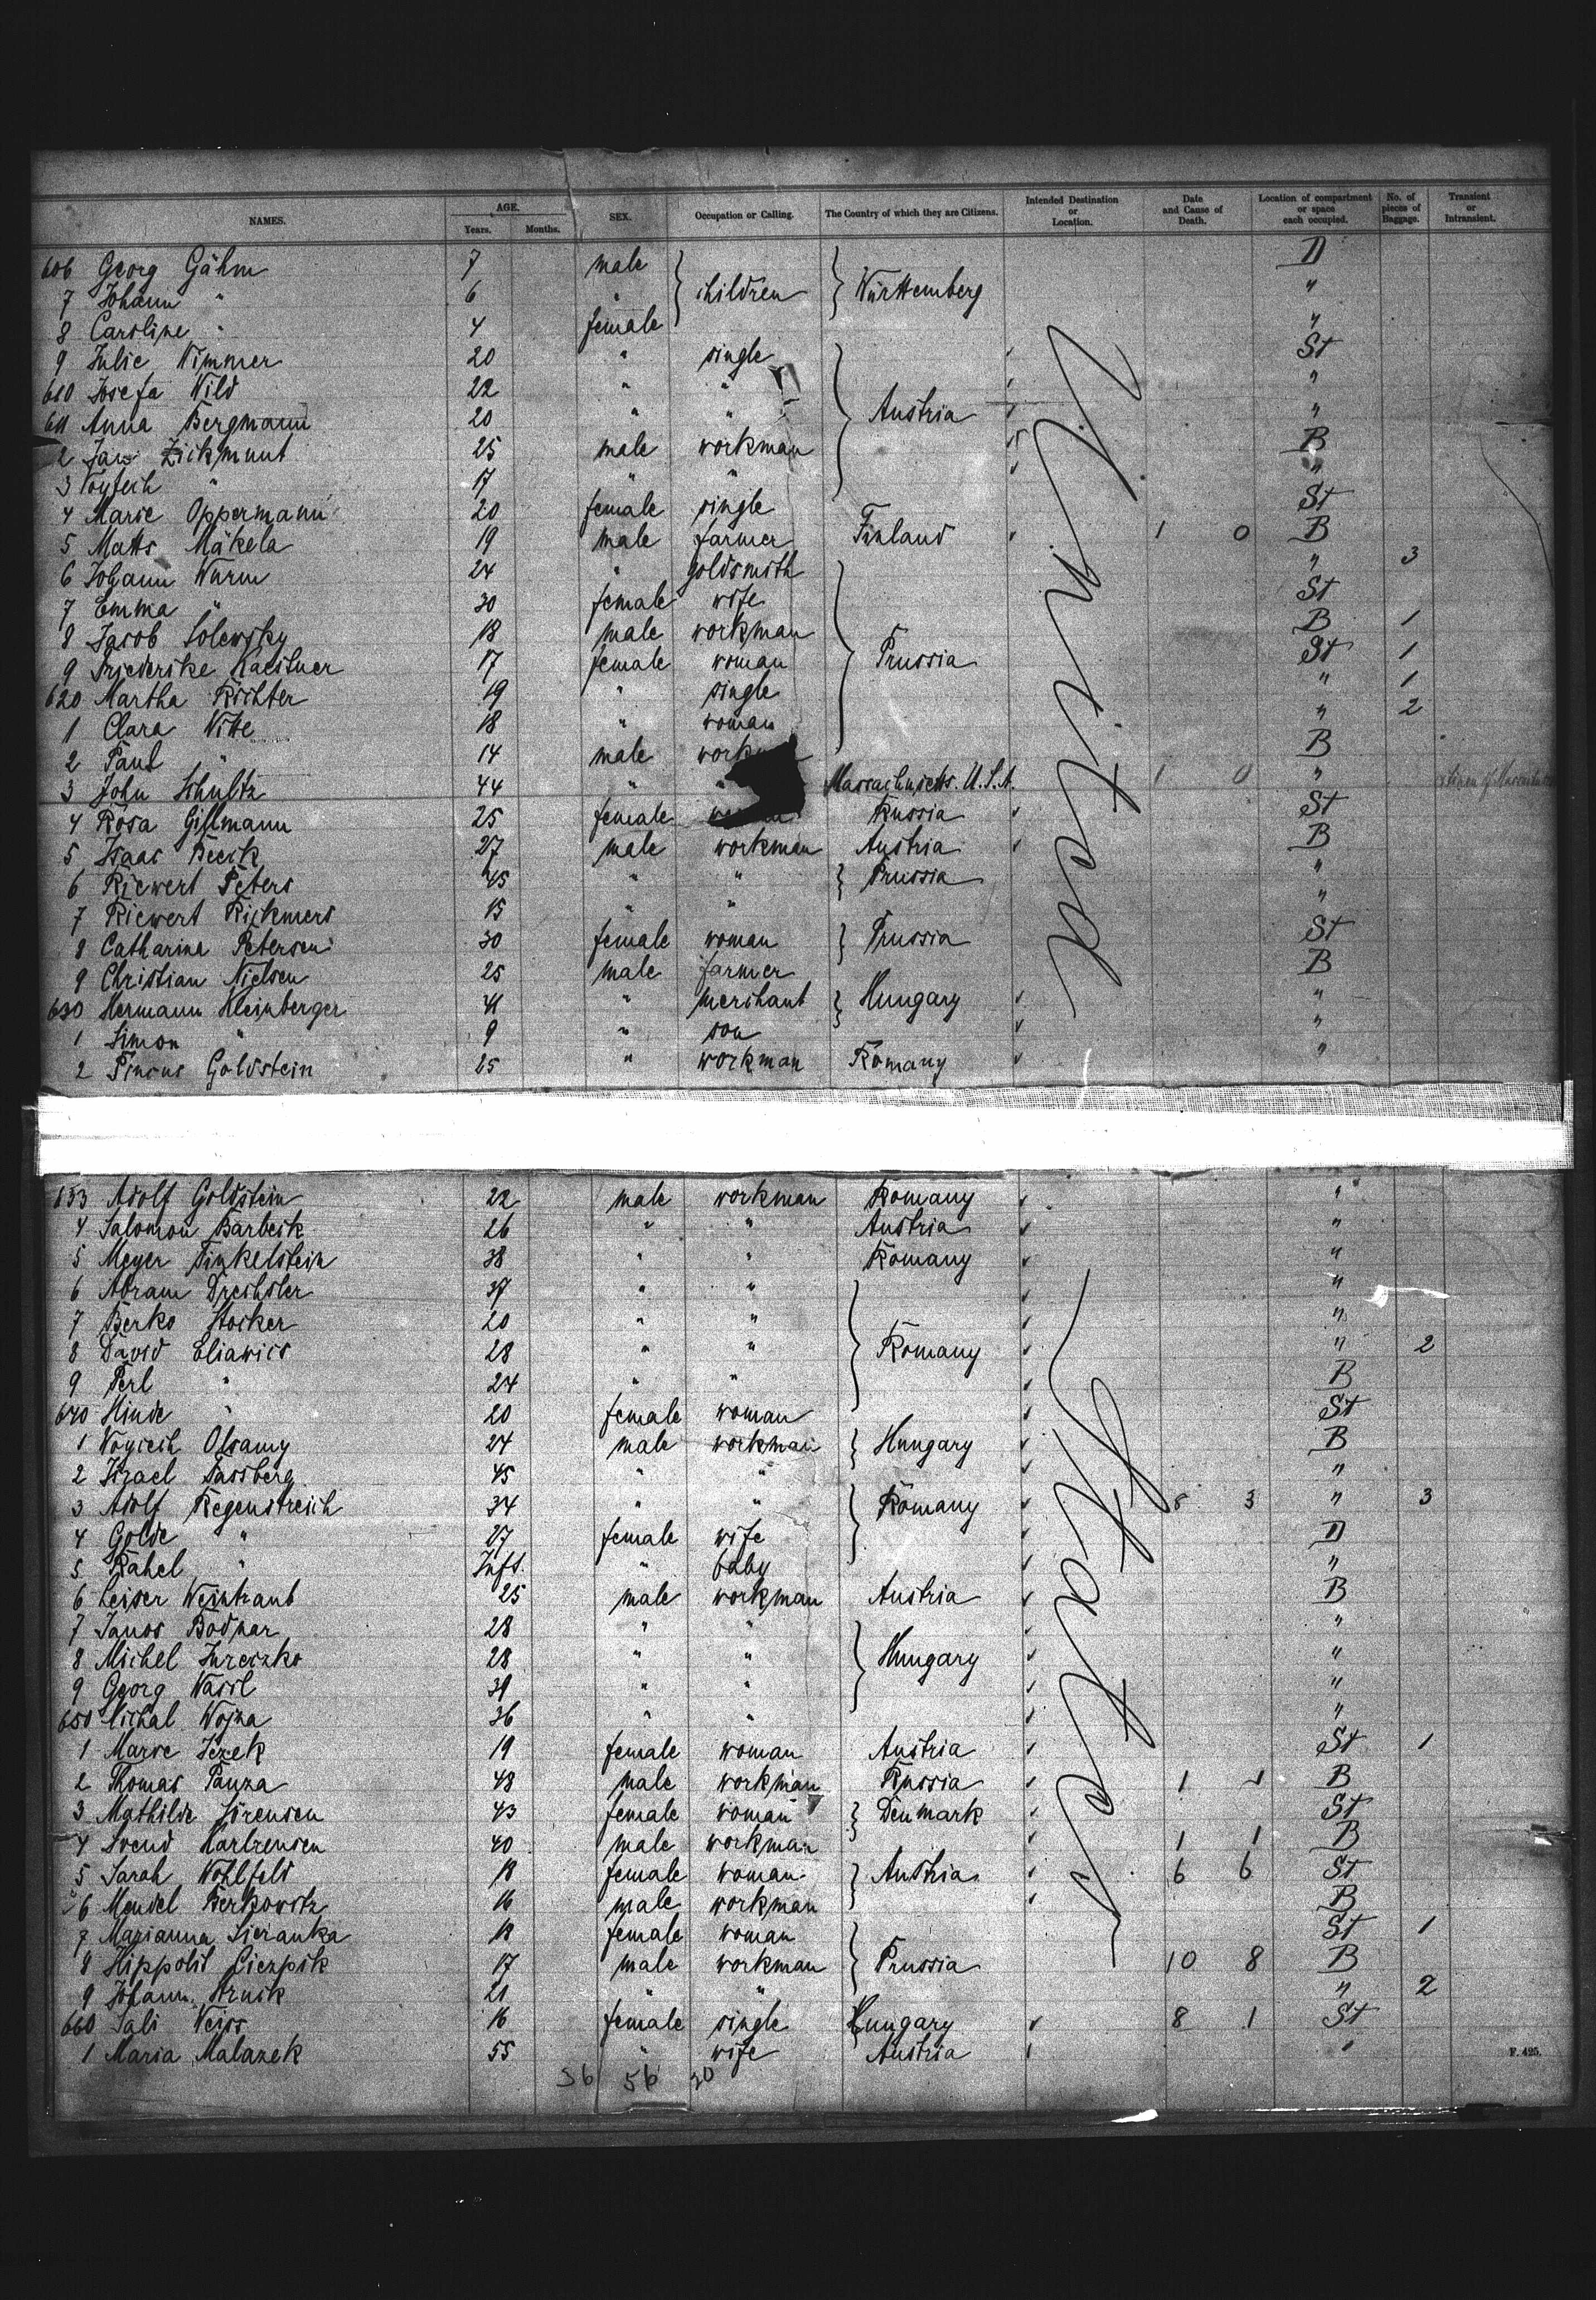 NAMES. AGE. Years. Months. SEX. Occupation or Calling. The Country of which they are Citizens. Intended Destination or Location. Date and Cause of Death. Location of compartment or space each occupied. No. of pieces of Baggage. Transient or Intransient.
606 Georg Gähm 7 male D
7 Johann " 6 " children Württemberg "
8 Caroline " 4 female "
9 Julie Wimmer 20 " single St
610 Josefa Wild 22 " " "
611 Anna Bergmann 20 " " Austria "
2 Jan Zickmunt 25 male workman B
3 Voytech " 17 " " "
4 Marie Oppermann 20 female single St
5 Matts Mäkela 19 male farmer Finland 1 0 B
6 Johann Wurm 24 " goldsmith " 3
7 Emma " 30 female wife St
8 Jacob Solewsky 18 male workman B 1
9 Friederike Kaestner 17 female woman Prussia St 1
620 Martha Richter 19 " single " 1
1 Clara Witte 18 " woman " 2
2 Paul " 14 male B
3 John Schultz 44 " Massachusetts. U.S.A. 1 0 "
4 Rosa Gillmann 25 female Russia St
5 Isaac Becik 27 male workman Austria B
6 Riewert Peters 45 " " Prussia "
7 Riewert Rickmers 15 " " "
8 Catharina Petersen 30 female woman Prussia St
9 Christian Nielsen 25 male farmer B
630 Hermann Kleinberger 41 " merchant Hungary "
1 Simon " 9 " son "
2 Pincus Goldstein 25 " workman Romany "
633 Adolf Goldstein 22 male workman Romany "
4 Salomon Barbeik 26 " " Austria "
5 Meyer Finkelstein 38 " " Romany "
6 Abram Drechsler 37 " " "
7 Berko Stocker 20 " " "
8 David Eliawics 28 " " Romany " 2
9 Perl " 24 " " B
640 Hinde " 20 female woman St
1 Voyciech Olsamy 24 male workman Hungary B
2 Israel Fassberg 45 " " "
3 Adolf Regenstreich 34 " " Romany 8 3 " 3
4 Golde " 27 female wife D
5 Rahel " Inft. " baby "
6 Leiser Weintraub 25 male workman Austria B
7 Janos Bodnar 28 " " "
8 Michel Jureczko 28 " " Hungary "
9 Georg Wassil 39 " " "
650 Michal Wojna 36 " " "
1 Marie Jezek 19 female woman Austria St 1
2 Thomas Panza 48 male workman Russia 1 1 B
3 Mathilde Sörensen 43 female woman Denmark St
4 Svend 40 male workman 1 1 B
5 Sarah Wohlfeld 18 female woman Austria 6 6 St
6 Mendel Berkowitz 16 male workman B
7 Marianna Sieranka 18 female woman St 1
8 Hippolit Ciezpik 17 male workman Prussia 10 8 B
9 Johann 21 " " " 2
660 Sali Weiss 16 female single Hungary 8 1 St
1 Maria Malazek 55 " wife Austria "
36 56 20
F. 425.